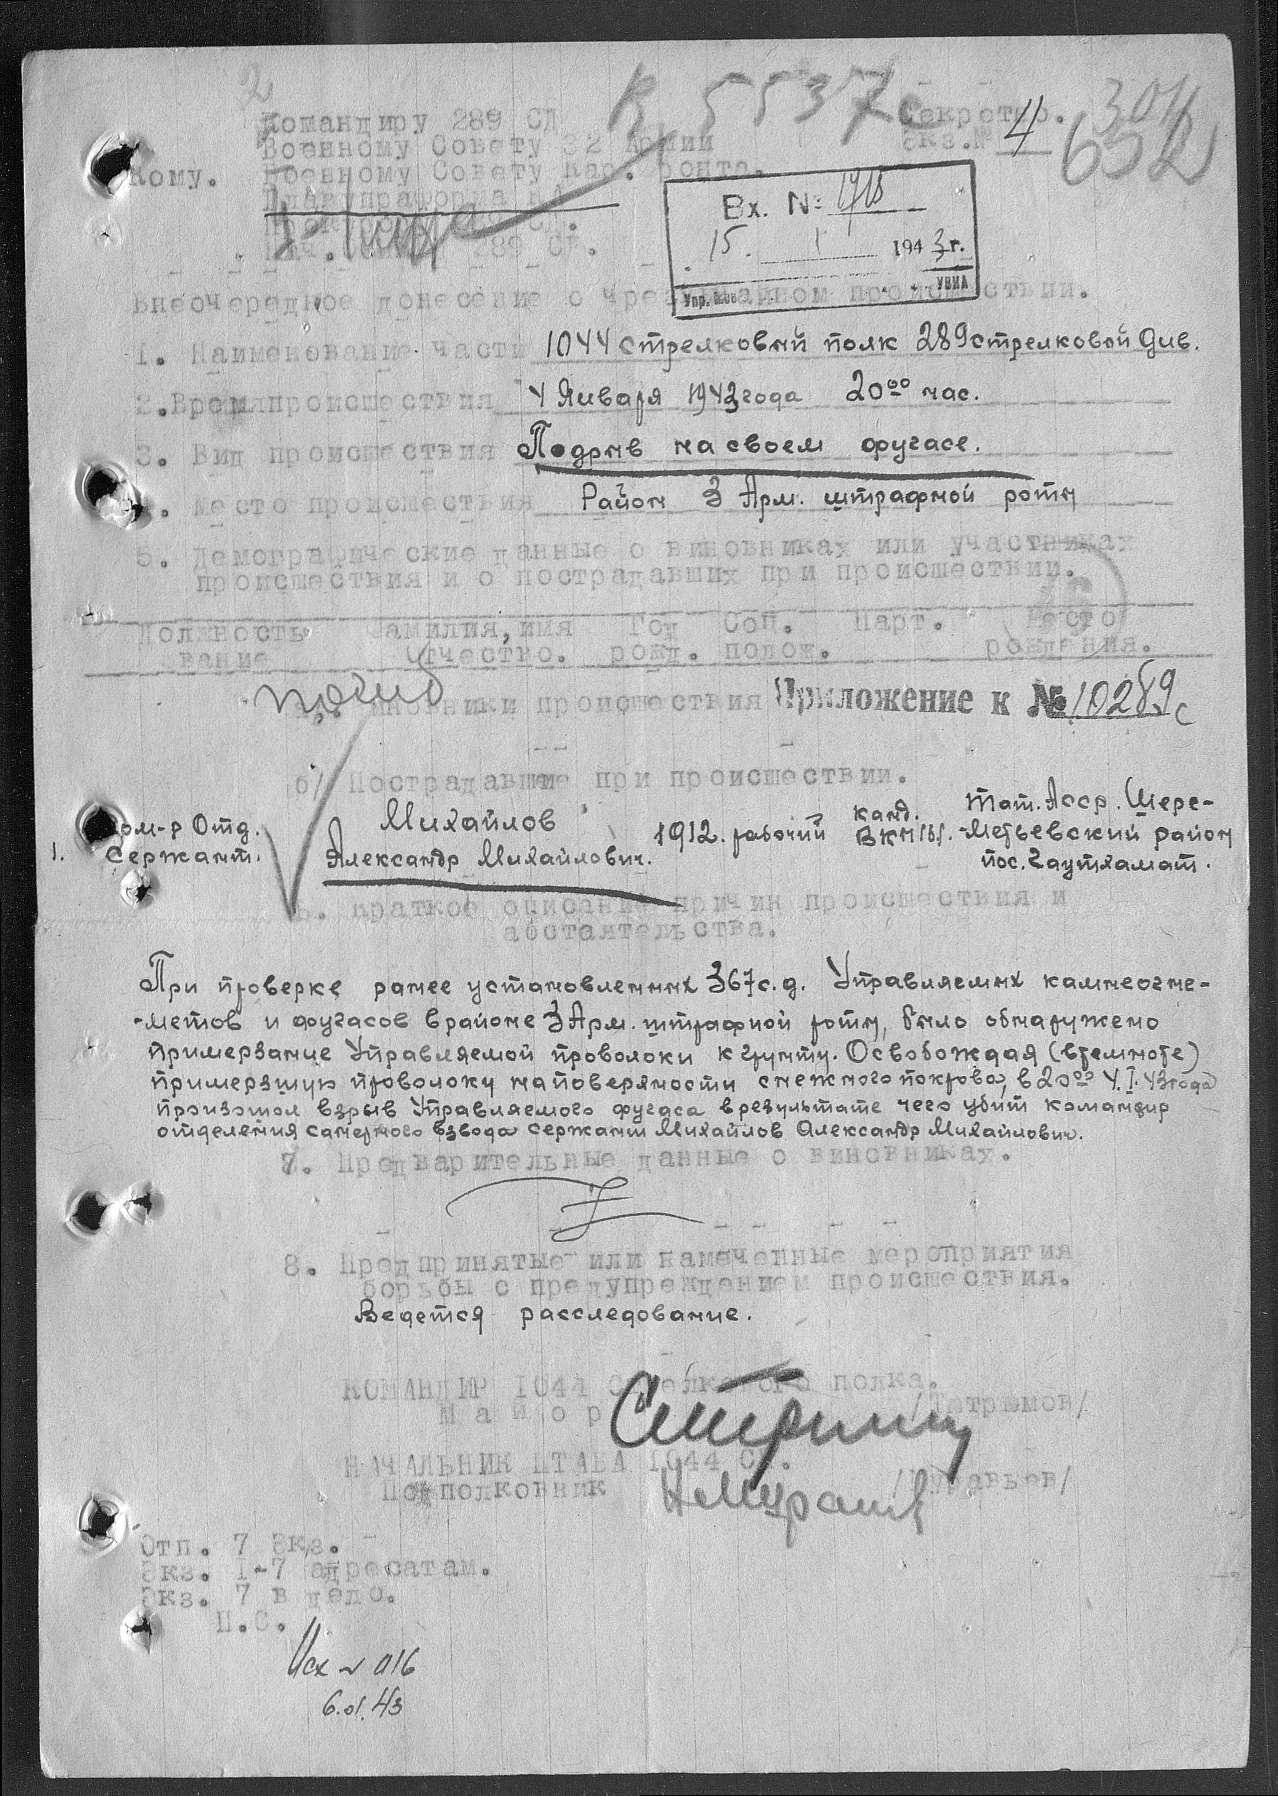 2
К 5537с
Секретно.
304
Командиру 289 СД
Военному Совету 32 Армии
экз.№ 4
652
Кому.
Военному Совету Кар. фронта.
Главупраформа КА
Вх. № 1718
289 СД.
15. I 1943 г.
Упр. УВИА
Внеочередное донесение о чрезвычайном происшествии.
1. Наименование части 1044 стрелковый полк 289 стрелковой див.
2. Время происшествия 4 Января 1943 года 20⁰⁰ час.
3. Вид происшествия Подрыв на своем фугасе.
. Место происшествия Район 3 Арм. штрафной роты
5. Демографические данные о виновниках или участниках
происшествия и о пострадавших при происшествии.
Должность Фамилия, имя Год Соц. Парт. Место
звание Отчество. рожд. полож. рождения.
погиб
виновники происшествия Приложение к № 10289с
б/ Пострадавшие при происшествии.
1. Ком-р Отд. Михайлов 1912. рабочий канд. Тат. Асср. Шере-
Сержант. Александр Михайлович. ВКП/б/. -метьевский район
пос.
6. Краткое описание причин происшествия и
абстоятельства.
При проверке ранее установленных 367 с.д. Управляемых камнеогне-
-метов и фугасов в районе 3 Арм. штрафной роты, было обнаружено
примерзание Управляемой проволоки к грунту. Освобождая (в темноте)
примерзшую проволоку на поверхности снежного покрова, в 20⁰⁰ 4.I.43 года
произошол взрыв Управляемого фугаса в результате чего убит командир
отделения саперного взвода сержант Михайлов Александр Михайлович.
7. Предварительные данные о виновниках.
8. Предпринятые или намеченные мероприятия
борьбы с предупреждением происшествия.
Ведется расследование.
КОМАНДИР 1044 стрелкового полка.
Майор
НАЧАЛЬНИК ШТАБА 1044 СП.
Подполковник /Муравьев/
Отп. 7 экз.
Экз. 1-7 адресатам.
Экз. 7 в дело.
П.С.
Исх № 016
6.01.43